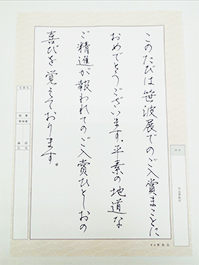 このたびは笹波展でのご入賞まことに
おめでとうございます。平素の地道な
ご精進が報われてのご入賞ひとしおの
喜びを覚えております。